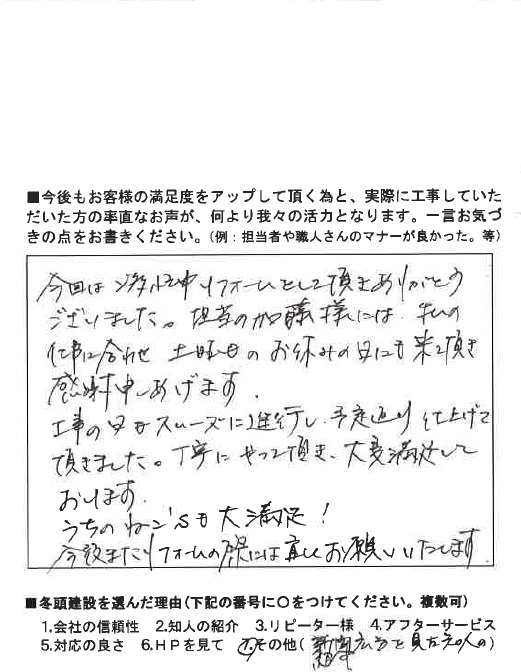 ■今後もお客様の満足度をアップして頂く為と、実際に工事していた
だいた方の率直なお声が、何より我々の活力となります。一言お気づ
きの点をお書きください。(例：担当者や職人さんのマナーが良かった。等)
今回は リフォームをして頂きありがとう
ございました。担当の加藤様には 私の
仕事に合わせ 土曜日のお休みの日にも来て頂き
感謝申しあげます。
工事の日もスムーズに進行し、予定通り仕上げて
頂きました。丁寧にやって頂き、大変満足して
おります。
うちのねこ'sも大満足！
今後またリフォームの際には宜しくお願いいたします
■冬頭建設を選んだ理由(下記の番号に○をつけてください。複数可)
1.会社の信頼性 2.知人の紹介 3.リピーター様 4.アフターサービス
5.対応の良さ 6.HPを見て 7.その他( 新聞広告を見た )